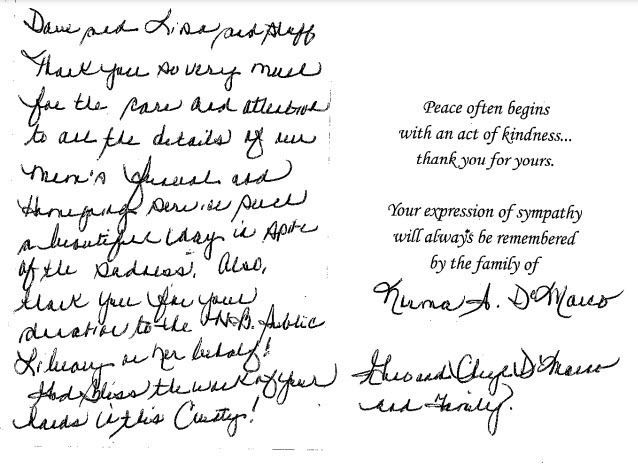 Dave and Lisa and Staff
Thank you so very much
for the care and attention
to all the details of our
Mom's funeral and
Homegoing service such
a beautiful day in spite
of the sadness. Also,
thank you for your
donation to the N.B. Public
Library on her behalf!
God Bless the work of your
hands in this County!
Peace often begins
with an act of kindness...
thank you for yours.
Your expression of sympathy
will always be remembered
by the family of
Norma A. DeMarco
and DeMarco
and Family.